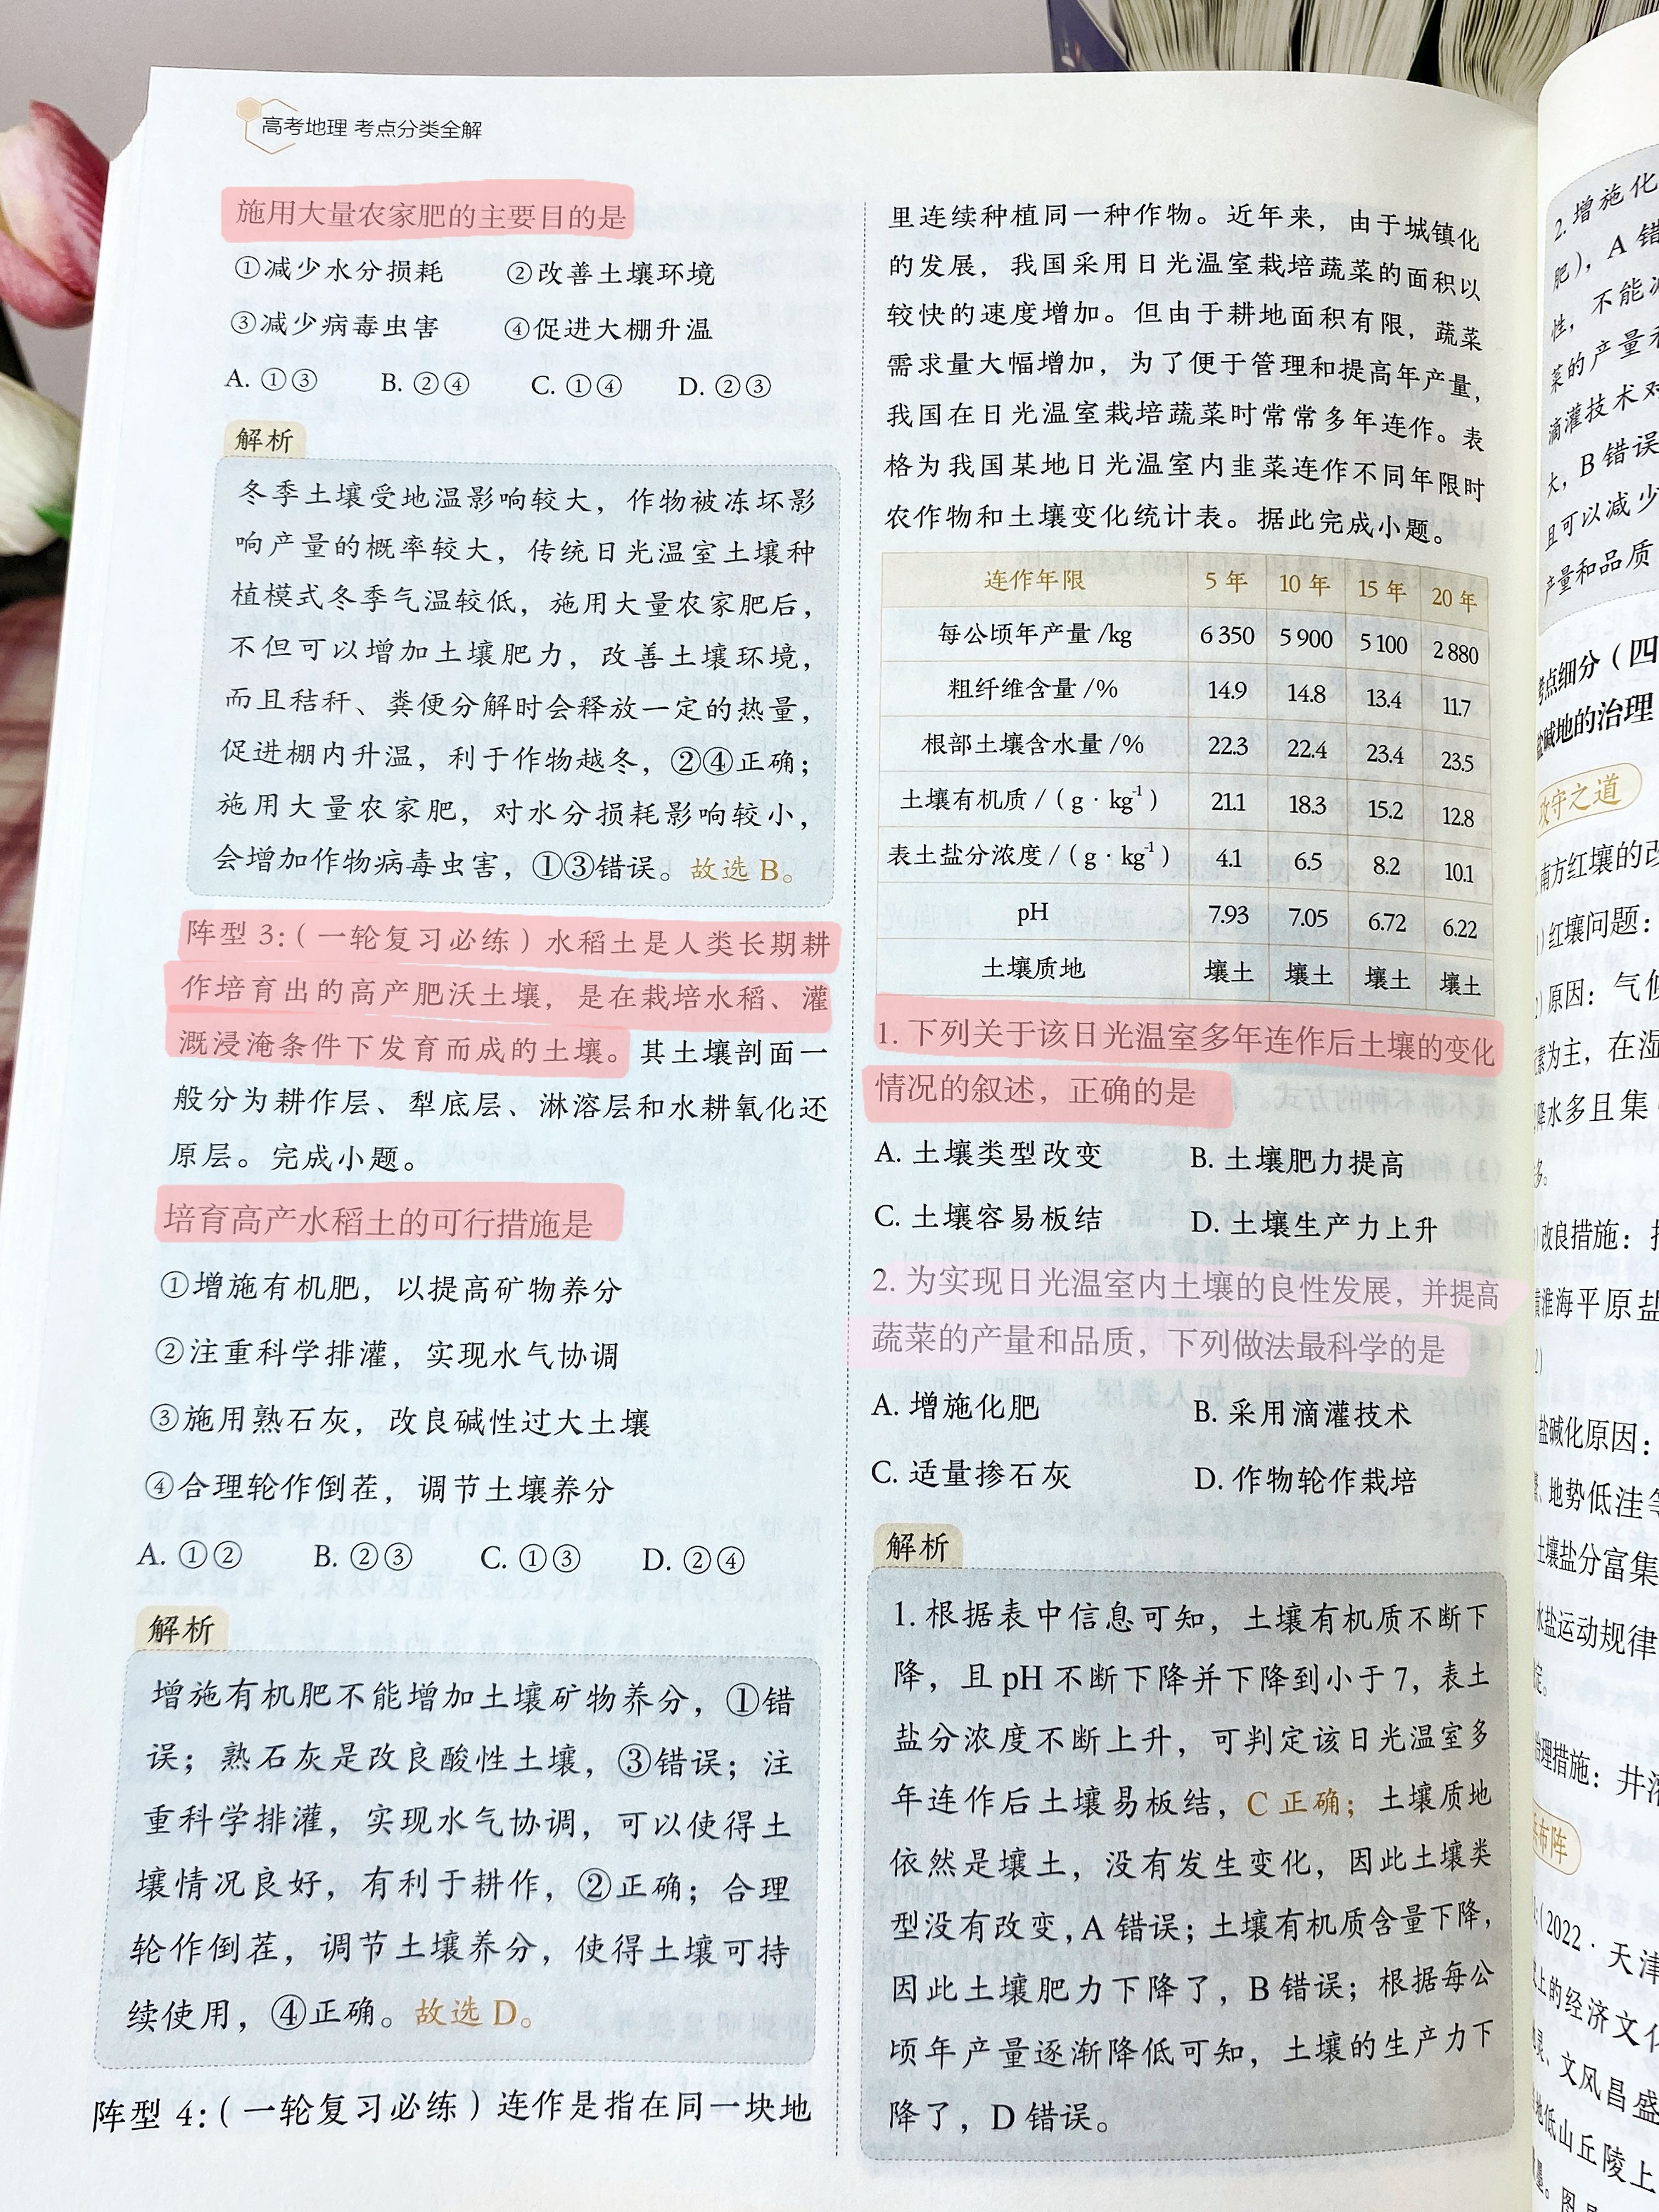 高考地理 考点分类全解
施用大量农家肥的主要目的是
①减少水分损耗 ②改善土壤环境
③减少病毒虫害 ④促进大棚升温
A. ①③ B. ②④ C. ①④ D. ②③
解析
冬季土壤受地温影响较大，作物被冻坏影
响产量的概率较大，传统日光温室土壤种
植模式冬季气温较低，施用大量农家肥后，
不但可以增加土壤肥力，改善土壤环境，
而且秸秆、粪便分解时会释放一定的热量，
促进棚内升温，利于作物越冬，②④正确；
施用大量农家肥，对水分损耗影响较小，
会增加作物病毒虫害，①③错误。故选 B。
阵型 3：（一轮复习必练）水稻土是人类长期耕
作培育出的高产肥沃土壤，是在栽培水稻、灌
溉浸淹条件下发育而成的土壤。其土壤剖面一
般分为耕作层、犁底层、淋溶层和水耕氧化还
原层。完成小题。
培育高产水稻土的可行措施是
①增施有机肥，以提高矿物养分
②注重科学排灌，实现水气协调
③施用熟石灰，改良碱性过大土壤
④合理轮作倒茬，调节土壤养分
A. ①② B. ②③ C. ①③ D. ②④
解析
增施有机肥不能增加土壤矿物养分，①错
误；熟石灰是改良酸性土壤，③错误；注
重科学排灌，实现水气协调，可以使得土
壤情况良好，有利于耕作，②正确；合理
轮作倒茬，调节土壤养分，使得土壤可持
续使用，④正确。故选 D。
阵型 4：（一轮复习必练）连作是指在同一块地
里连续种植同一种作物。近年来，由于城镇化
的发展，我国采用日光温室栽培蔬菜的面积以
较快的速度增加。但由于耕地面积有限，蔬菜
需求量大幅增加，为了便于管理和提高年产量，
我国在日光温室栽培蔬菜时常常多年连作。表
格为我国某地日光温室内韭菜连作不同年限时
农作物和土壤变化统计表。据此完成小题。
连作年限 5 年 10 年 15 年 20 年
每公顷年产量 /kg 6 350 5 900 5 100 2 880
粗纤维含量 /% 14.9 14.8 13.4 11.7
根部土壤含水量 /% 22.3 22.4 23.4 23.5
土壤有机质 /（g · kg⁻¹） 21.1 18.3 15.2 12.8
表土盐分浓度 /（g · kg⁻¹） 4.1 6.5 8.2 10.1
pH 7.93 7.05 6.72 6.22
土壤质地 壤土 壤土 壤土 壤土
1. 下列关于该日光温室多年连作后土壤的变化
情况的叙述，正确的是
A. 土壤类型改变 B. 土壤肥力提高
C. 土壤容易板结 D. 土壤生产力上升
2. 为实现日光温室内土壤的良性发展，并提高
蔬菜的产量和品质，下列做法最科学的是
A. 增施化肥 B. 采用滴灌技术
C. 适量掺石灰 D. 作物轮作栽培
解析
1. 根据表中信息可知，土壤有机质不断下
降，且 pH 不断下降并下降到小于 7，表土
盐分浓度不断上升，可判定该日光温室多
年连作后土壤易板结，C 正确；土壤质地
依然是壤土，没有发生变化，因此土壤类
型没有改变，A 错误；土壤有机质含量下降，
因此土壤肥力下降了，B 错误；根据每公
顷年产量逐渐降低可知，土壤的生产力下
降了，D 错误。
2. 增施化
肥），A 错
性，不能
菜的产量
滴灌技术
大，B 错误
且可以减少
产量和品质
考点细分（四
盐碱地的治理
攻守之道
南方红壤的改
）红壤问题：
）原因：气候
素为主，在湿
降水多且集
多。
改良措施：
黄淮海平原盐
盐碱化原因：
、地势低洼等
土壤盐分富集
水盐运动规律
治理措施：井
布阵
（2022 · 天津
上的经济文化
、文风昌盛
地低山丘陵上